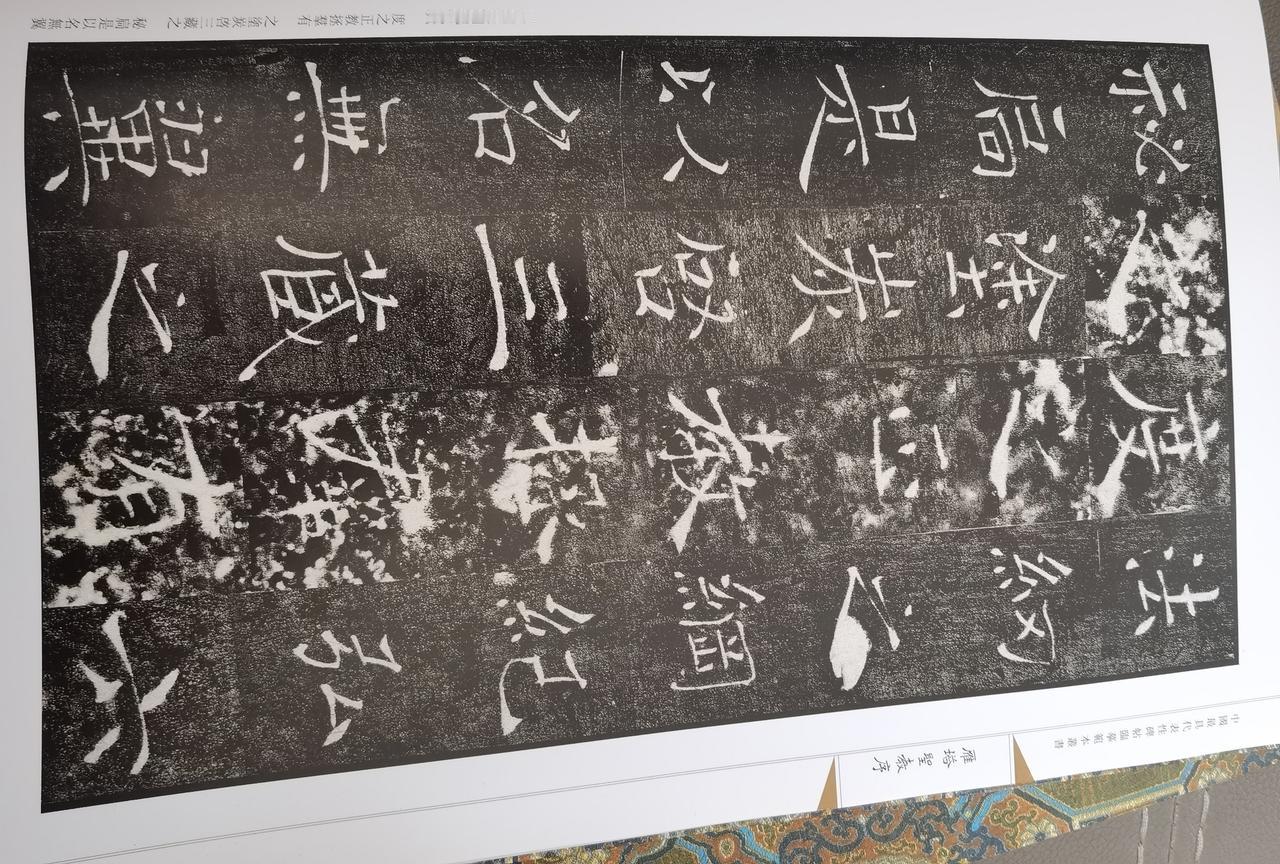 中國最具代表性碑帖臨摹範本叢書
雁塔聖教序
法網之綱紀弘六
度之正教拯羣有
之塗炭啓三藏之
秘扃是以名無翼
度之正教拯羣有
之塗炭啓三藏之
秘扃是以名無翼